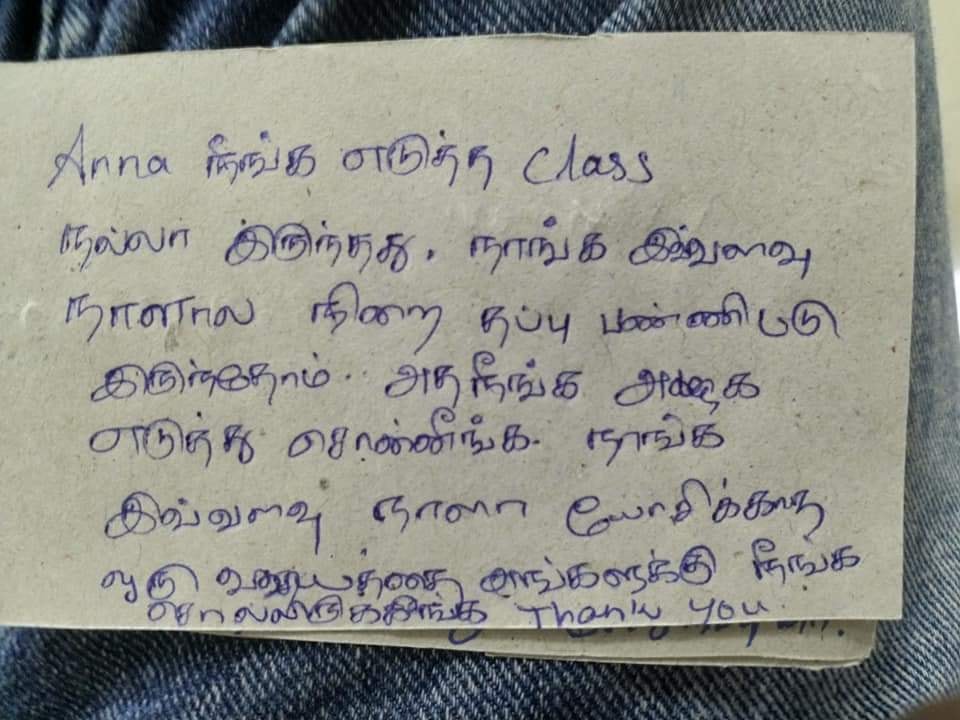 Anna நீங்க எடுத்த Class
நல்லா இருந்தது. நாங்க இவ்வளவு
நாளால நிறை தப்பு பண்ணிடடு
இருந்தோம். அத நீங்க அழகக
எடுத்து சொன்னீங்க. நாங்க
இவ்வளவு நாளா யோசிக்காத
ஒரு எங்களுக்கு நீங்க
சொல்லிருக்கீங்க Thank You.